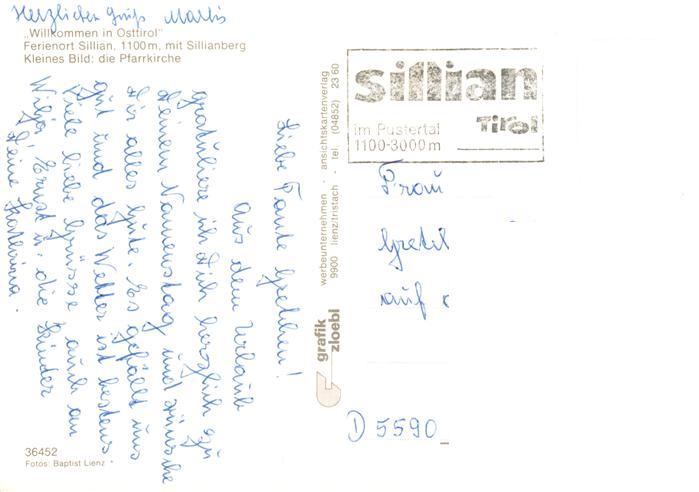 Herzlichen Gruß Martis
„Willkommen in Osttirol“
Ferienort Sillian, 1100 m, mit Sillianberg
Kleines Bild: die Pfarrkirche
Liebe Tante Gretchen!
Aus dem Urlaub
gratuliere ich Dich herzlich zu
Deinem Namenstag und wünsche
Dir alles Gute. Es gefällt uns
gut und das Wetter ist bestens
Viele liebe Grüsse auch an
Ernst u. die Kinder
Deine Katharina.
36452
Fotos: Baptist Lienz
werbeunternehmen · ansichtskartenverlag
9900 lienz/tristach · tel. (04852) 23 60
grafik
zloebl
sillian
Tirol
im Pustertal
1100-3000 m
Frau
Gretel
auf
D 5590